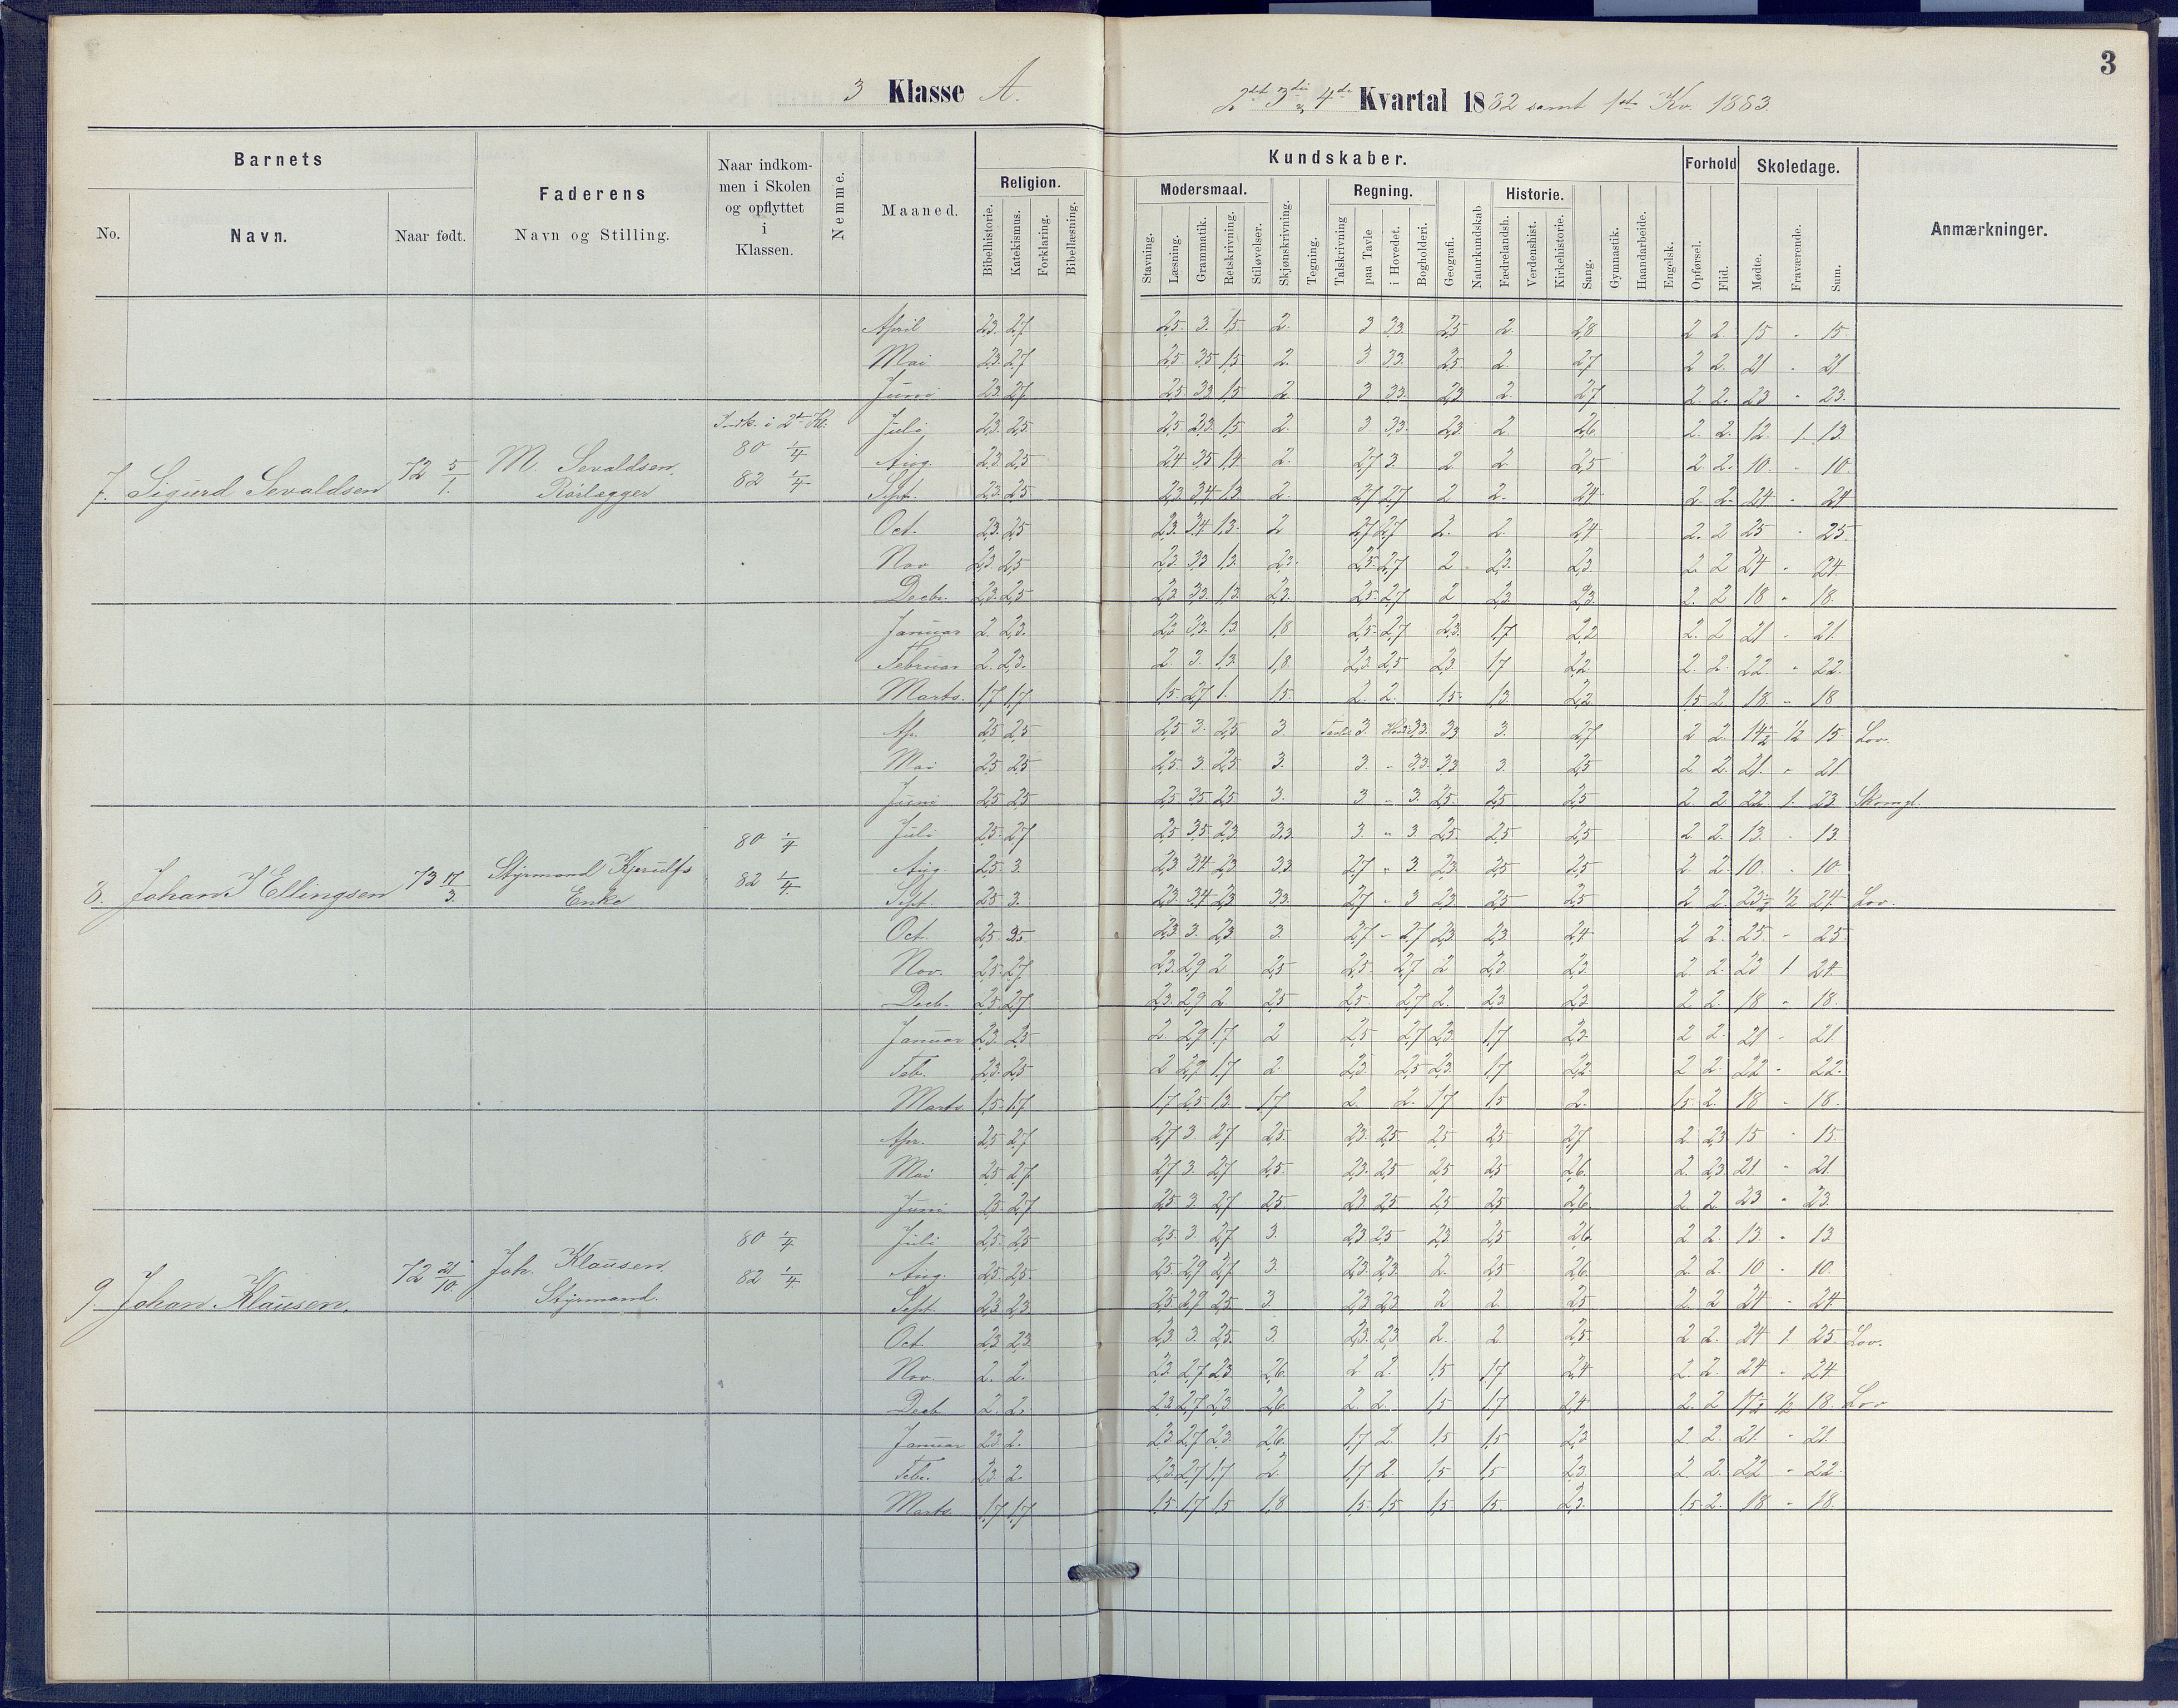 3
3 Klasse A.
2det 3die & 4de Kvartal 1882 samt 1ste Kv. 1883.
Barnets
Faderens
Naar indkommen i Skolen og opflyttet i Klassen.
Nemme.
Maaned.
Religion.
Kundskaber.
Forhold
Skoledage.
Anmærkninger.
No.
Navn.
Naar født.
Navn og Stilling.
Bibelhistorie.
Katekismus.
Forklaring.
Bibellæsning.
Modersmaal.
Stavning.
Læsning.
Grammatik.
Retskrivning.
Stiløvelser.
Skjønskrivning.
Tegning.
Regning.
Talskrivning
paa Tavle
i Hovedet.
Bogholderi.
Geografi.
Naturkundskab
Historie.
Fædrelandsh.
Verdenshist.
Kirkehistorie.
Sang.
Gymnastik.
Haandarbeide.
Engelsk.
Opførsel.
Flid.
Mødte.
Fraværende.
Sum.
7. Sigurd Sevaldsen 72 5/1. M. Sevaldsen, Rørlægger Indk. i 2d Kl. 80 1/4 82 1/4
April 2,3. 2,7 2,5. 3. 1,5 2. 3 3,3. 2,5 2. 2,8 2 2. 15 - 15.
Mai 2,3 2,7 2,5 3,5 1,5 2. 3 3,3. 2,5. 2. 2,7 2 2. 21 - 21
Juni 2,3. 2,7 2,5. 3,3 1,5 2. 3 3,3. 2,3 2. 2,7 2 2. 23 - 23.
Juli 2,3. 2,5 2,5. 2,3. 1,5 2. 3 3,3. 2,3 2 2,6 2. 2. 12. 1. 13.
Aug. 2,3. 2,5 2,4 3,5 1,4 2. 2,7 3. 2 2. 2,5 2. 2. 10. - 10.
Sept. 2,3. 2,5 2,3. 3,4 1,3 2. 2,7 2,7 2 2. 2,4 2. 2. 24 - 24
Oct. 2,3. 2,5 2,3. 3,4 1,3. 2 2,7 2,7 2. 2. 2,4 2. 2 25 - 25.
Nov 2,3. 2,5 2,3. 3,3 1,3. 2,3. 2,5. 2,7 2 2,3. 2,3. 2. 2 24 - 24.
Decbr. 2,3. 2,5 2,3 3,3. 1,3. 2,3. 2,5. 2,7 2 2,3. 2,3. 2. 2 18 - 18.
Januar 2. 2,3. 2,3 3,3. 1,3. 1,8 2,5. 2,7 2,3. 1,7 2,2 2. 2 21 - 21.
Februar 2. 2,3. 2. 3. 1,3. 1,8. 2,3. 2,5 2,3. 1,7 2,2 2. 2. 22. - 22.
Marts. 1,7 1,7 1,5. 2,7 1. 1,5. 2. 2. 1,5. 1,3. 2,2 1,5 2 18. - 18
8. Johan J Ellingsen 73 17/3. Styrmand Kjerulfs Enke 80 1/4 82 1/4
Apr. 2,5 2,5 2,5 3. 2,5. 3 Tavle 3. 3,3. 3,3 3. 2,7 2 2. 14 1/2 1/2 15. Lov.
Mai 2,5 2,5 2,5. 3. 2,5 3. 3. - 3,3. 3,3 3. 2,5 2 2. 21. - 21
Juni 2,5 2,5 2,5 3,5 2,5. 3. 3 - 3. 2,5. 2,5 2,5 2. 2. 22. 1. 23.
Juli 2,5. 2,7 2,5 3,5 2,3. 3,3. 3. " 3. 2,5. 2,5 2,5 2 2. 13. - 13.
Aug. 2,5. 3. 2,3 3,4 2,3 3,3 2,7 " 3. 2,3. 2,5 2,5 2 2. 10. - 10.
Sept. 2,5 3. 2,3. 3,4 2,3 3,3. 2,7 - 3 2,3 2,5 2,5 2 2. 23 1/2 1/2 24. Lov.
Oct. 2,5. 2,5. 2,3 3. 2,3 3. 2,7 - 2,7 2,3 2,3 2,4 2 2. 25. - 25.
Nov. 2,5. 2,7 2,3. 2,9 2 2,5 2,5. 2,7 2 2,3. 2,3. 2 2. 23 1 24
Decb. 2,5. 2,7 2,3. 2,9 2. 2,5 2,5. 2,7 2. 2,3 2,3 2 2. 18 " 18.
Januar 2,3. 2,5. 2. 2,9 1,7 2 2,5 2,7 2,3 1,7 2,3. 2 2. 21 - 21
Feb. 2,3. 2,5 2 2,9 1,7 2. 2,3 2,5 2,3. 1,7 2,2. 2 2. 22 - 22.
Marts 1,5. 1,7 1,7 2,5. 1,3. 1,7 2. 2. 1,7 1,5 2. 1,5. 2. 18 - 18.
9. Johan Klausen. 72 21/10. Joh. Klausen. Styrmand. 80 1/4 82 1/4
Apr. 2,5 2,7 2,7 3. 2,7 2,5. 2,3. 2,5. 2,5 2,5 2,7 2. 2,3 15 - 15.
Mai 2,5 2,7. 2,7 3. 2,7 2,5. 2,3. 2,5 2,5 2,5 2,6 2. 2,3. 21 - 21.
Juni 2,5. 2,7 2,5 3. 2,7 2,5 2,3. 2,5 2,5 2,5 2,6 2 2. 23 - 23.
Juli 2,5. 2,5 2,5. 3. 2,7 3. 2,3 2,5 2,3. 2,5 2,6. 2 2. 13. - 13
Aug. 2,5. 2,5. 2,5. 2,9 2,7 3. 2,3. 2,3. 2. 2,5 2,6. 2. 2. 10 - 10.
Sept. 2,3 2,3. 2,5. 2,9 2,5. 3. 2,3 2,3 2 2. 2,5 2. 2 24 - 24.
Oct. 2,3 2,3 2,3. 3. 2,5. 3. 2,3. 2,3. 2. 2 2,5. 2 2. 24 1. 25. Lov.
Nov. 2. 2. 2,3. 2,7 2,3 2,6. 2 2. 1,5 1,7 2,4 2. 2. 24 - 24
Decb. 2. 2. 2,3 2,7 2,3. 2,6 2. 2. 1,5 1,7 2,4 2. 2 17 1/2 1/2 18. Lov
Januar 2,3. 2. 2,3. 2,7 2,3. 2,6. 1,7 2. 1,5 1,5 2,3 2. 2. 21. - 21.
Febr. 2,3. 2. 2,3. 2,7 1,7 2. 1,7 2. 1,5 1,5 2,3. 2. 2. 22 - 22.
Marts. 1,7 1,7 1,5 1,7 1,5 1,8 1,5. 1,5. 1,5. 1,5. 2,3. 1,5. 2. 18 - 18.